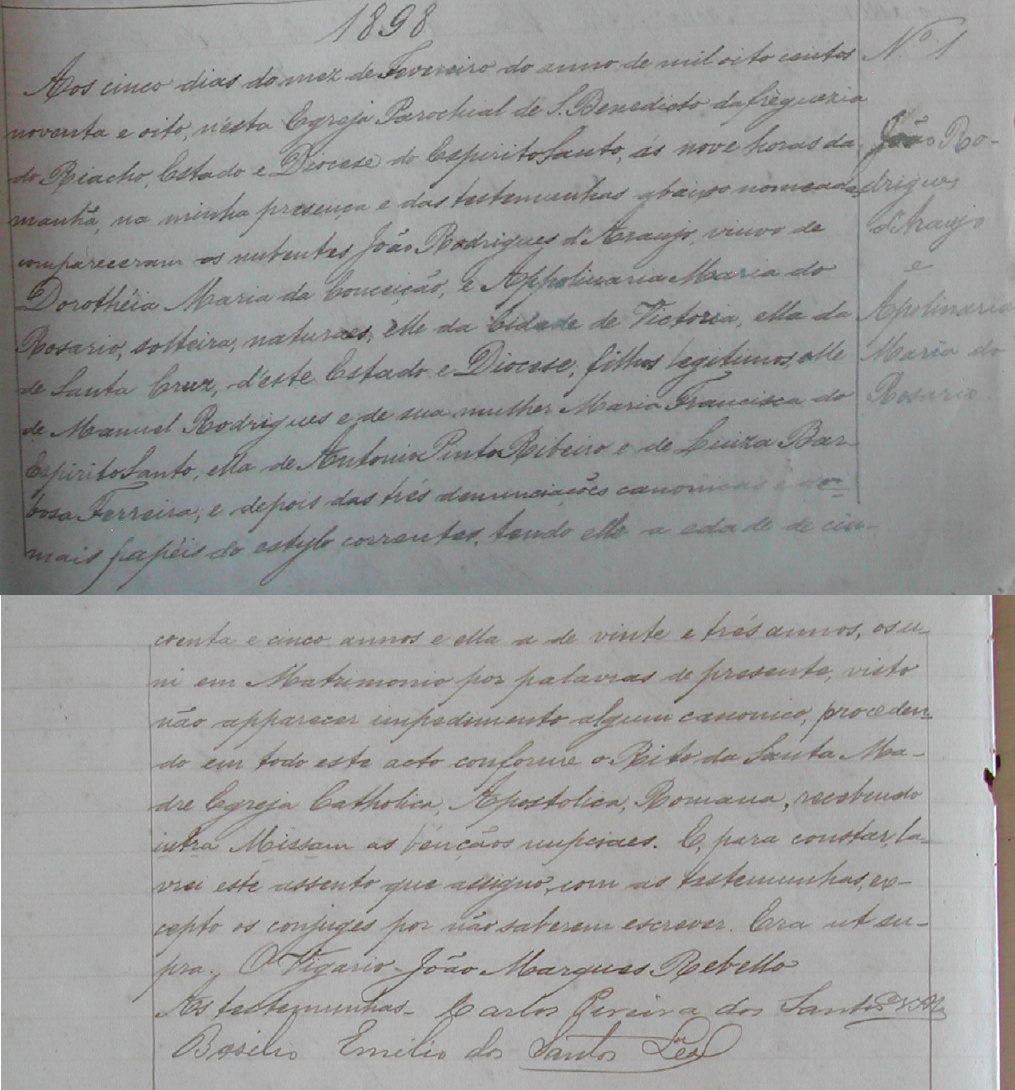 1898
Aos cinco dias do mez de Fevereiro do anno de mil oito centos
noventa e oito, n'esta Egreja Parochial de S. Benedicto da freguezia
do Riacho, Estado e Diocese do Espirito Santo, ás nove horas da
manhã, na minha presença e das testemunhas abaixo nomeadas,
compareceram os nubentes João Rodrigues d'Araujo, viuvo de
Dorothêia Maria da Conceição, e Appolinaria Maria do
Rosario, solteira, naturaes, elle da Cidade de Victoria, ella da
de Santa Cruz, d'este Estado e Diocese, filhos legitimos, elle
de Manuel Rodrigues e de sua mulher Maria Francisca do
Espirito Santo, ella de Antonio Pinto Ribeiro e de Luiza Bar-
bosa Ferreira, e depois das três denunciações canonicas e de-
mais papéis do estylo correntes, tendo elle a edade de cin-
N.º 1
João Ro-
drigues
d'Araujo
e
Apolinaria
Maria do
Rosario
coenta e cinco annos e ella a de vinte e três annos, os u-
ni em Matrimonio por palavras de presente, visto
não apparecer impedimento algum canonico, proceden-
do em todo este acto conforme o Rito da Santa Ma-
dre Egreja Catholica, Apostolica, Romana, recebendo
intra Missam as bençãos nupciaes. E, para constar, la-
vrei este assento que assigno, com as testemunhas, ex-
cepto os conjuges por não saberem escrever. Era ut su-
pra. O Vigario João Marques Rebello
As testemunhas- Carlos Pereira dos Santos
Basilio Emilio dos Santos Leal